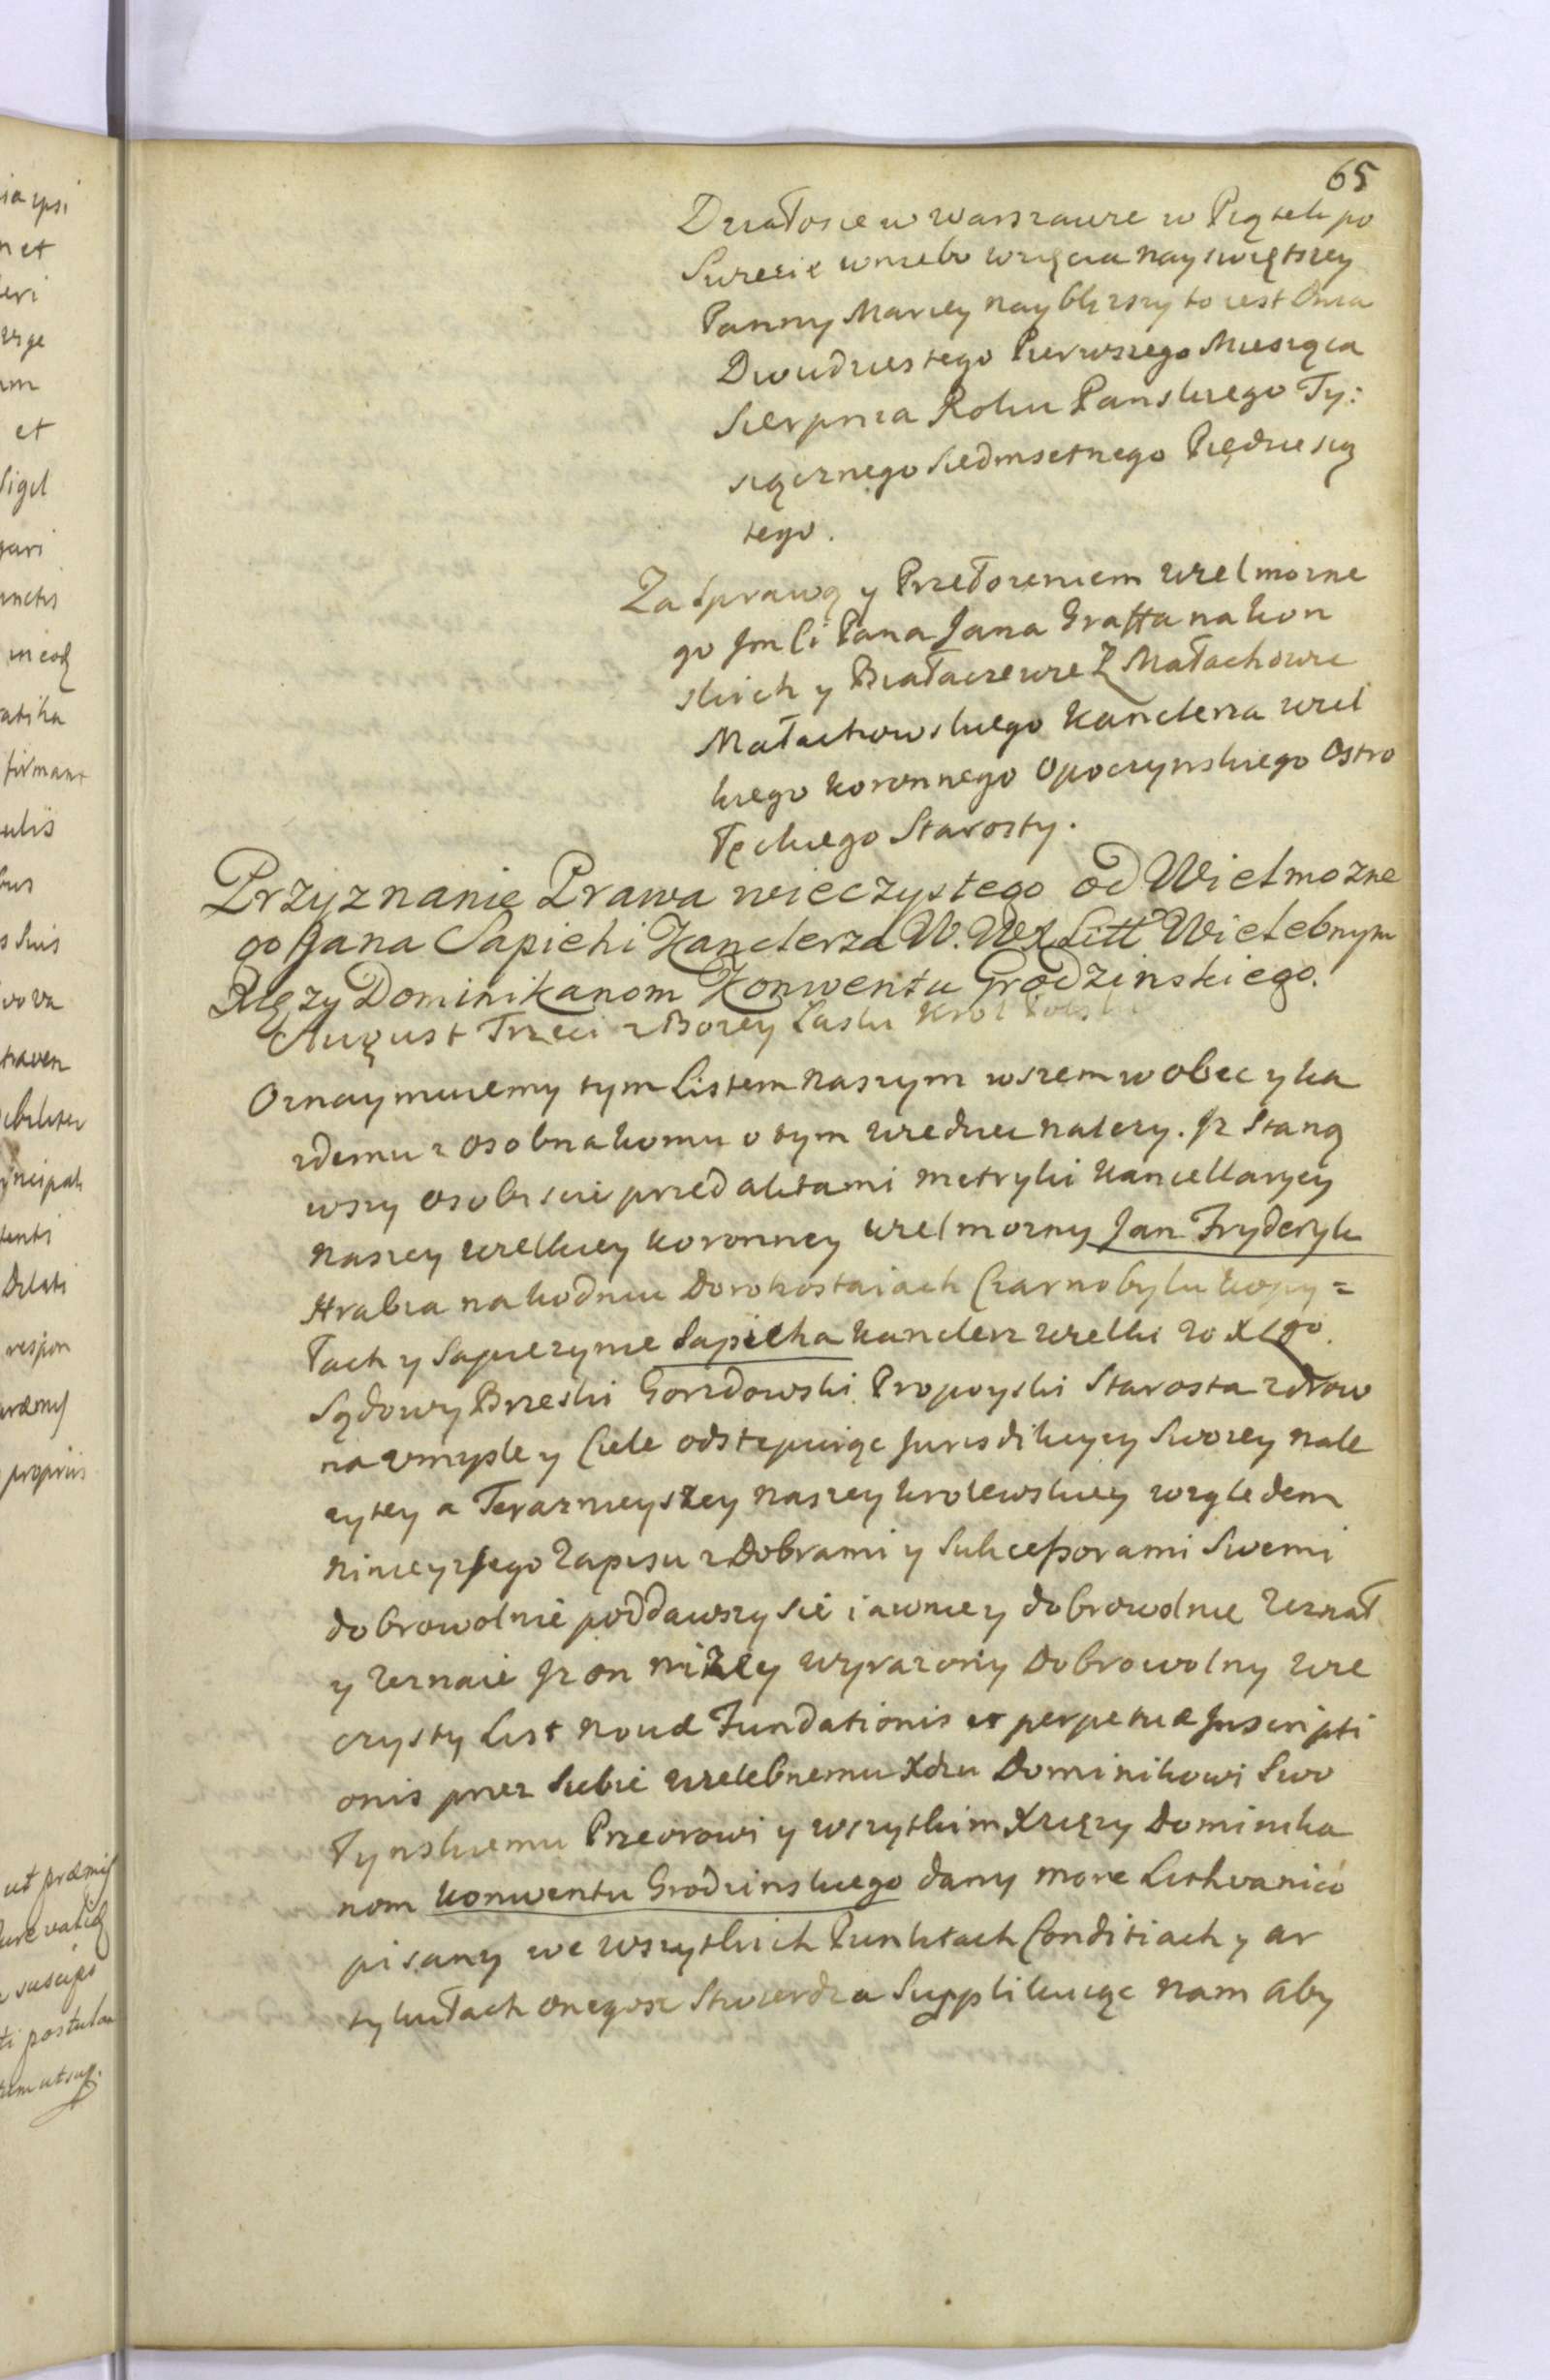 65
Działosie w Warszawie w Piątek po
Swięcie wniebo wzięcia nayswiętszey
Panny Maryey nayblizszy to iest Dnia
Dwudziestego Pierwszego Miesiąca
Sierpnia Roku Panskiego Ty:
siącznego Siedmsetnego Pięćdziesią
tego.
Za Sprawą y Przełozeniem Wielmozne
go Jm Ci Pana Jana Graffa na Kon
skich y Białaczewie Z Małachowic
Małachowskiego Kanclerza Wiel
kiego Koronnego Opoczynskiego Ostro
łęckiego Starosty.
Przyznanie Prawa wieczystego od Wielmozne
go Jana Sapiehi Kanclerza W. W X Litt Wielebnym
Xięzy Dominikanom Konwentu Grodzinskiego.
August Trzeci z Bozey Łaski Krol Polski
Oznaymuiemy tym Listem Naszym wszem w obec y ka
zdemu z osobna komu o tym wiedziec nalezy. Jz Staną
wszy osobiscie przed aktami Metryki Kancellaryey
Naszey wielkiey koronney wielmozny Jan Fryderyk
Hrabia na kodniu Dorohostaiach Czarnobylu kopy=
łach y Sapiezynie Sapieha kanclerz wielki W X Lgo
Sądowy Brzeski Gorzdowski Propoyski Starosta zdrow
na Vmysle y Ciele odstępuiąc Jurisdikcyey Swoiey nale
zytey a Terazneyszey naszey krolewskiey względem
ninieyszego Zapisu z Dobrami y Sukcessorami Swemi
dobrowolnie poddawszy sie iawnie y dobrowolnie Zeznał
y Zeznaie Jz on nizey wyrazony Dobrowolny wie
czysty List Novæ Fundationis et perpetuæ Jnscripti
onis przez Siebie wielebnemu Xdzu Dominikowi Swo
Tynskiemu Przeorowi y wszytkim Xięzy Dominika
nom konwentu Grodzinskiego dany more Lithvanico
pisany we wszytkich Punktach Conditiach y ar
tykułach onegosz Stwierdza Supplikuiąc Nam aby